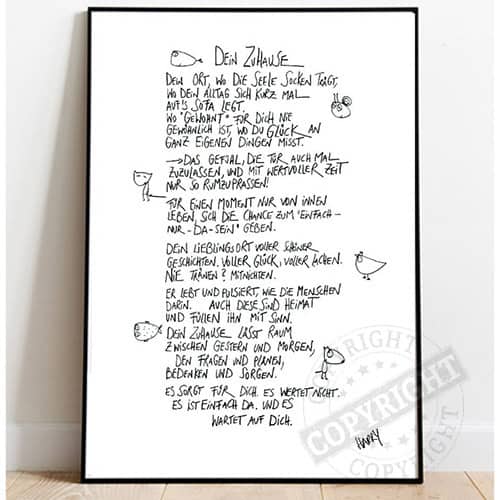 DEIN ZUHAUSE
DEIN ORT, WO DIE SEELE SOCKEN TRÄGT,
WO DEIN ALLTAG SICH KURZ MAL
AUF'S SOFA LEGT.
WO "GEWOHNT" FÜR DICH NIE
GEWÖHNLICH IST, WO DU GLÜCK AN
GANZ EIGENEN DINGEN MISST.
→DAS GEFÜHL, DIE TÜR AUCH MAL
ZUZULASSEN, UND MIT WERTVOLLER ZEIT
NUR SO RUMZUPRASSEN!
FÜR EINEN MOMENT NUR VON INNEN
LEBEN, SICH DIE CHANCE ZUM "EINFACH-
NUR-DA-SEIN" GEBEN.
DEIN LIEBLINGSORT VOLLER SCHÖNER
GESCHICHTEN. VOLLER GLÜCK, VOLLER LACHEN.
NIE TRÄNEN? MITNICHTEN.
ER LEBT UND PULSIERT, WIE DIE MENSCHEN
DARIN. AUCH DIESE SIND HEIMAT
UND FÜLLEN IHN MIT SINN.
DEIN ZUHAUSE LÄSST RAUM
ZWISCHEN GESTERN UND MORGEN,
DEN FRAGEN UND PLÄNEN,
BEDENKEN UND SORGEN.
ES SORGT FÜR DICH. ES WERTET NICHT.
ES IST EINFACH DA. UND ES
WARTET AUF DICH.
COPYRIGHT
COPYRIGHT
COPYRIGHT